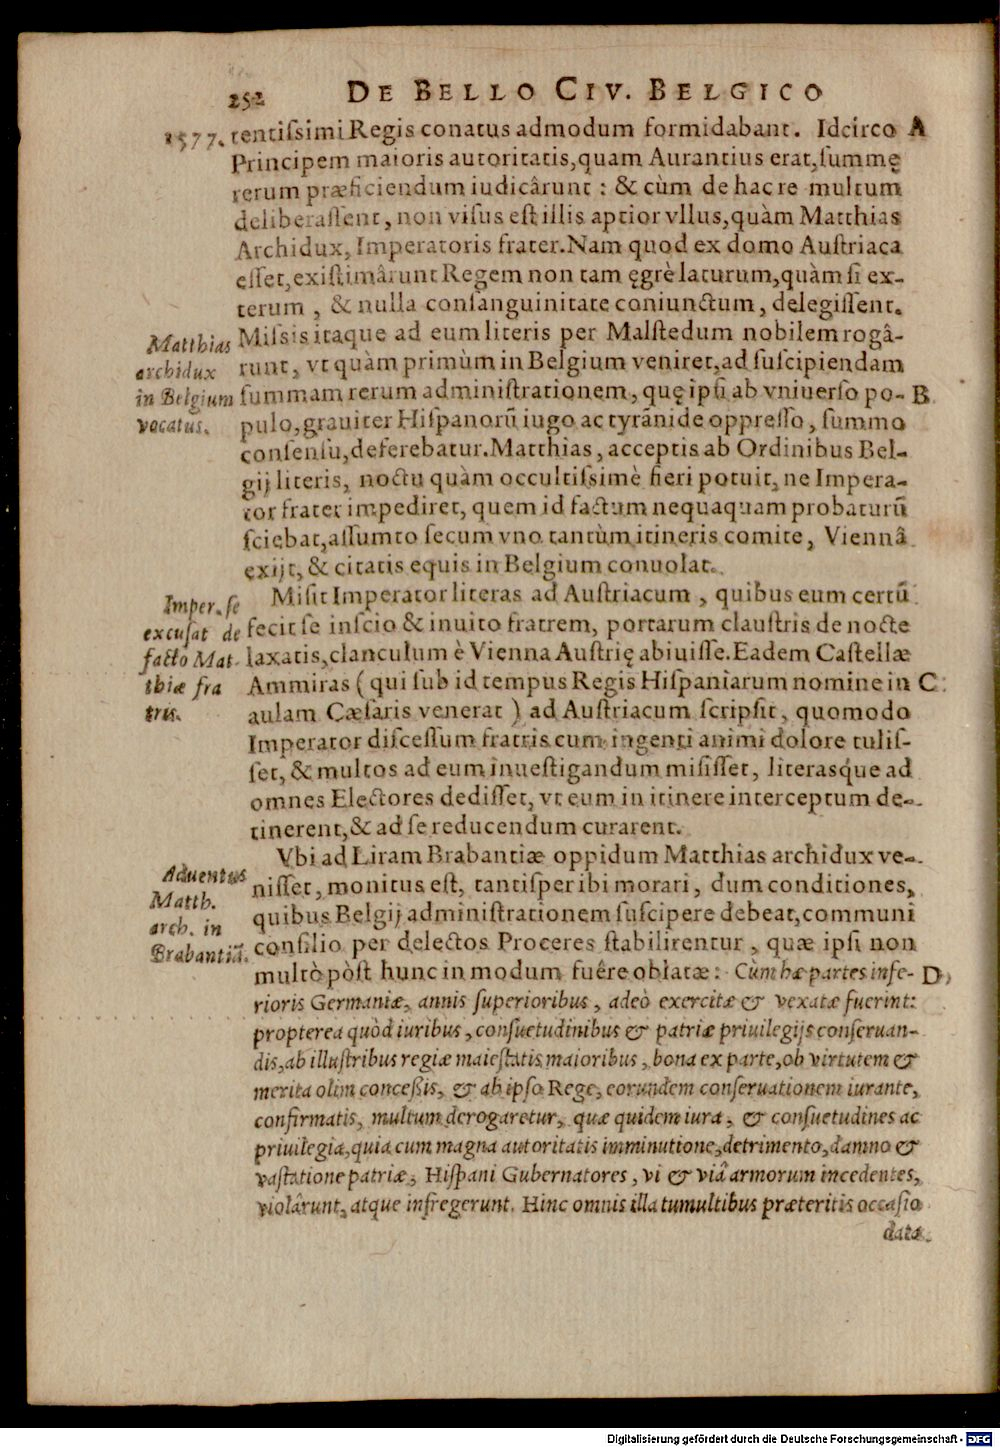 252 DE BELLO CIV. BELGICO
1577. tentiſsimi Regis conatus admodum formidabant. Idcirco A
Principem maioris autoritatis, quam Aurantius erat, ſummę
rerum præficiendum iudicârunt : & cùm de hac re multum
deliberaſſent, non viſus eſt illis aptior vllus, quàm Matthias
Archidux, Imperatoris frater. Nam quod ex domo Auſtriaca
eſſet, exiſtimârunt Regem non tam ęgrè laturum, quàm ſi ex-
terum , & nulla conſanguinitate coniunctum, delegiſſent.
Matthias
archidux
in Belgium
vocatus.
Miſsis itaque ad eum literis per Malſtedum nobilem rogâ-
runt, vt quàm primùm in Belgium veniret, ad ſuſcipiendam
ſummam rerum adminiſtrationem, quę ipſi ab vniuerſo po- B
pulo, grauiter Hiſpanorũ iugo ac tyrãnide oppreſſo, ſummo
conſenſu, deferebatur. Matthias, acceptis ab Ordinibus Bel-
gij literis, noctu quàm occultiſsimè fieri potuit, ne Impera-
tor frater impediret, quem id factum nequaquam probaturũ
ſciebat, aſſumto ſecum vno tantùm itineris comite, Viennâ
exijt, & citatis equis in Belgium conuolat.
Imper. ſe
excuſat de
facto Mat-
thiæ fra
tris.
Miſit Imperator literas ad Auſtriacum , quibus eum certũ
fecit ſe inſcio & inuito fratrem, portarum clauſtris de nocte
laxatis, clanculum è Vienna Auſtrię abiuiſſe. Eadem Caſtellæ
Ammiras ( qui ſub id tempus Regis Hiſpaniarum nomine in C
aulam Cæſaris venerat ) ad Auſtriacum ſcripſit, quomodo
Imperator diſceſſum fratris cum ingenti animi dolore tuliſ-
ſet, & multos ad eum inueſtigandum miſiſſet, literasq́ue ad
omnes Electores dediſſet, vt eum in itinere interceptum de-
tinerent, & ad ſe reducendum curarent.
Aduentus
Matth.
arch. in
Brabantiã.
Vbi ad Liram Brabantiæ oppidum Matthias archidux ve-
niſſet, monitus eſt, tantiſper ibi morari, dum conditiones,
quibus Belgij adminiſtrationem ſuſcipere debeat, communi
conſilio per delectos Proceres ſtabilirentur, quæ ipſi non
multò pòſt hunc in modum fuêre oblatæ: Cùm hæ partes infe- D
rioris Germaniæ, annis ſuperioribus, adeò exercitæ & vexatæ fuerint:
propterea quòd iuribus, conſuetudinibus & patriæ priuilegijs conſeruan-
dis, ab illuſtribus regiæ maieſtatis maioribus, bona ex parte, ob virtutem &
merita olim conceßis, & ab ipſo Rege, eorundem conſeruationem iurante,
confirmatis, multum derogaretur, quæ quidem iura, & conſuetudines ac
priuilegia, quia cum magna autoritatis imminutione, detrimento, damno &
vaſtatione patriæ, Hiſpani Gubernatores, vi & viâ armorum incedentes,
violârunt, atque infregerunt. Hinc omnis illa tumultibus præteritis occaſio
data.
Digitalisierung gefördert durch die Deutsche Forschungsgemeinschaft - DFG